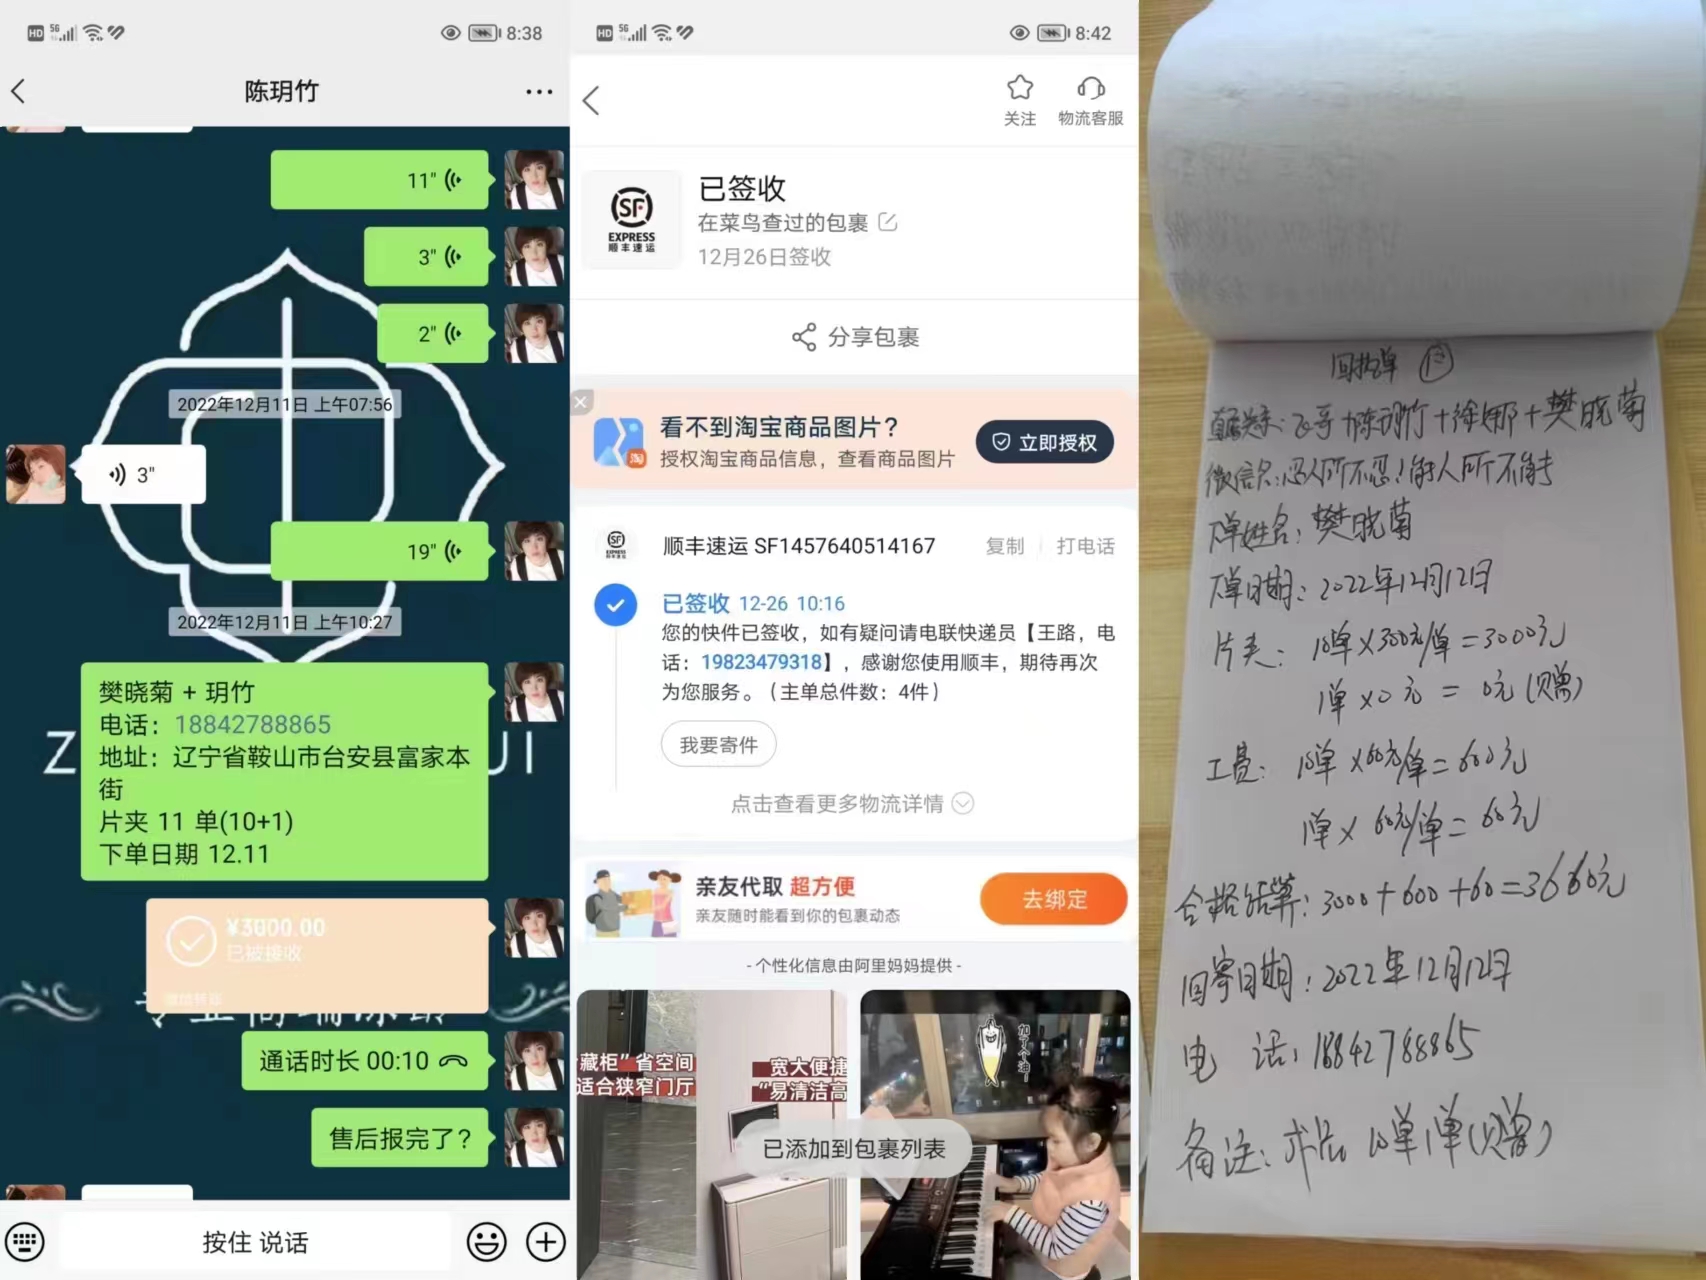 HD 5G 8:38
陈玥竹
11"
3"
2"
2022年12月11日 上午07:56
3"
19"
2022年12月11日 上午10:27
樊晓菊 + 玥竹
电话：18842788865
地址：辽宁省鞍山市台安县富家本
街
片夹 11 单(10+1)
下单日期 12.11
¥3000.00
已被接收
微信转账
通话时长 00:10
售后报完了?
按住 说话
HD 5G 8:42
关注 物流客服
SF
EXPRESS
顺丰速运
已签收
在菜鸟查过的包裹
12月26日签收
分享包裹
看不到淘宝商品图片？
授权淘宝商品信息，查看商品图片
淘
立即授权
顺丰速运 SF1457640514167 复制 打电话
已签收 12-26 10:16
您的快件已签收，如有疑问请电联快递员【王路，电
话：19823479318】，感谢您使用顺丰，期待再次
为您服务。（主单总件数：4件）
我要寄件
点击查看更多物流详情
亲友代取 超方便
亲友随时能看到你的包裹动态
去绑定
- 个性化信息由阿里妈妈提供 -
藏柜”省空间
适合狭窄门厅
宽大便捷
“易清洁高
加个油！
已添加到包裹列表
回执单
飞哥+陈玥竹+徐娜+樊晓菊
微信名：忍人所不忍！能人所不能
下单姓名：樊晓菊
下单日期：2022年12月12日
片夹：10单×300元/单=3000元
1单×0元=0元(赠)
工费：10单×60元/单=600元
1单×60元/单=60元
合格结算：3000+600+60=3660元
回寄日期：2022年12月12日
电 话：18842788865
备注：术后 10单1单(赠)